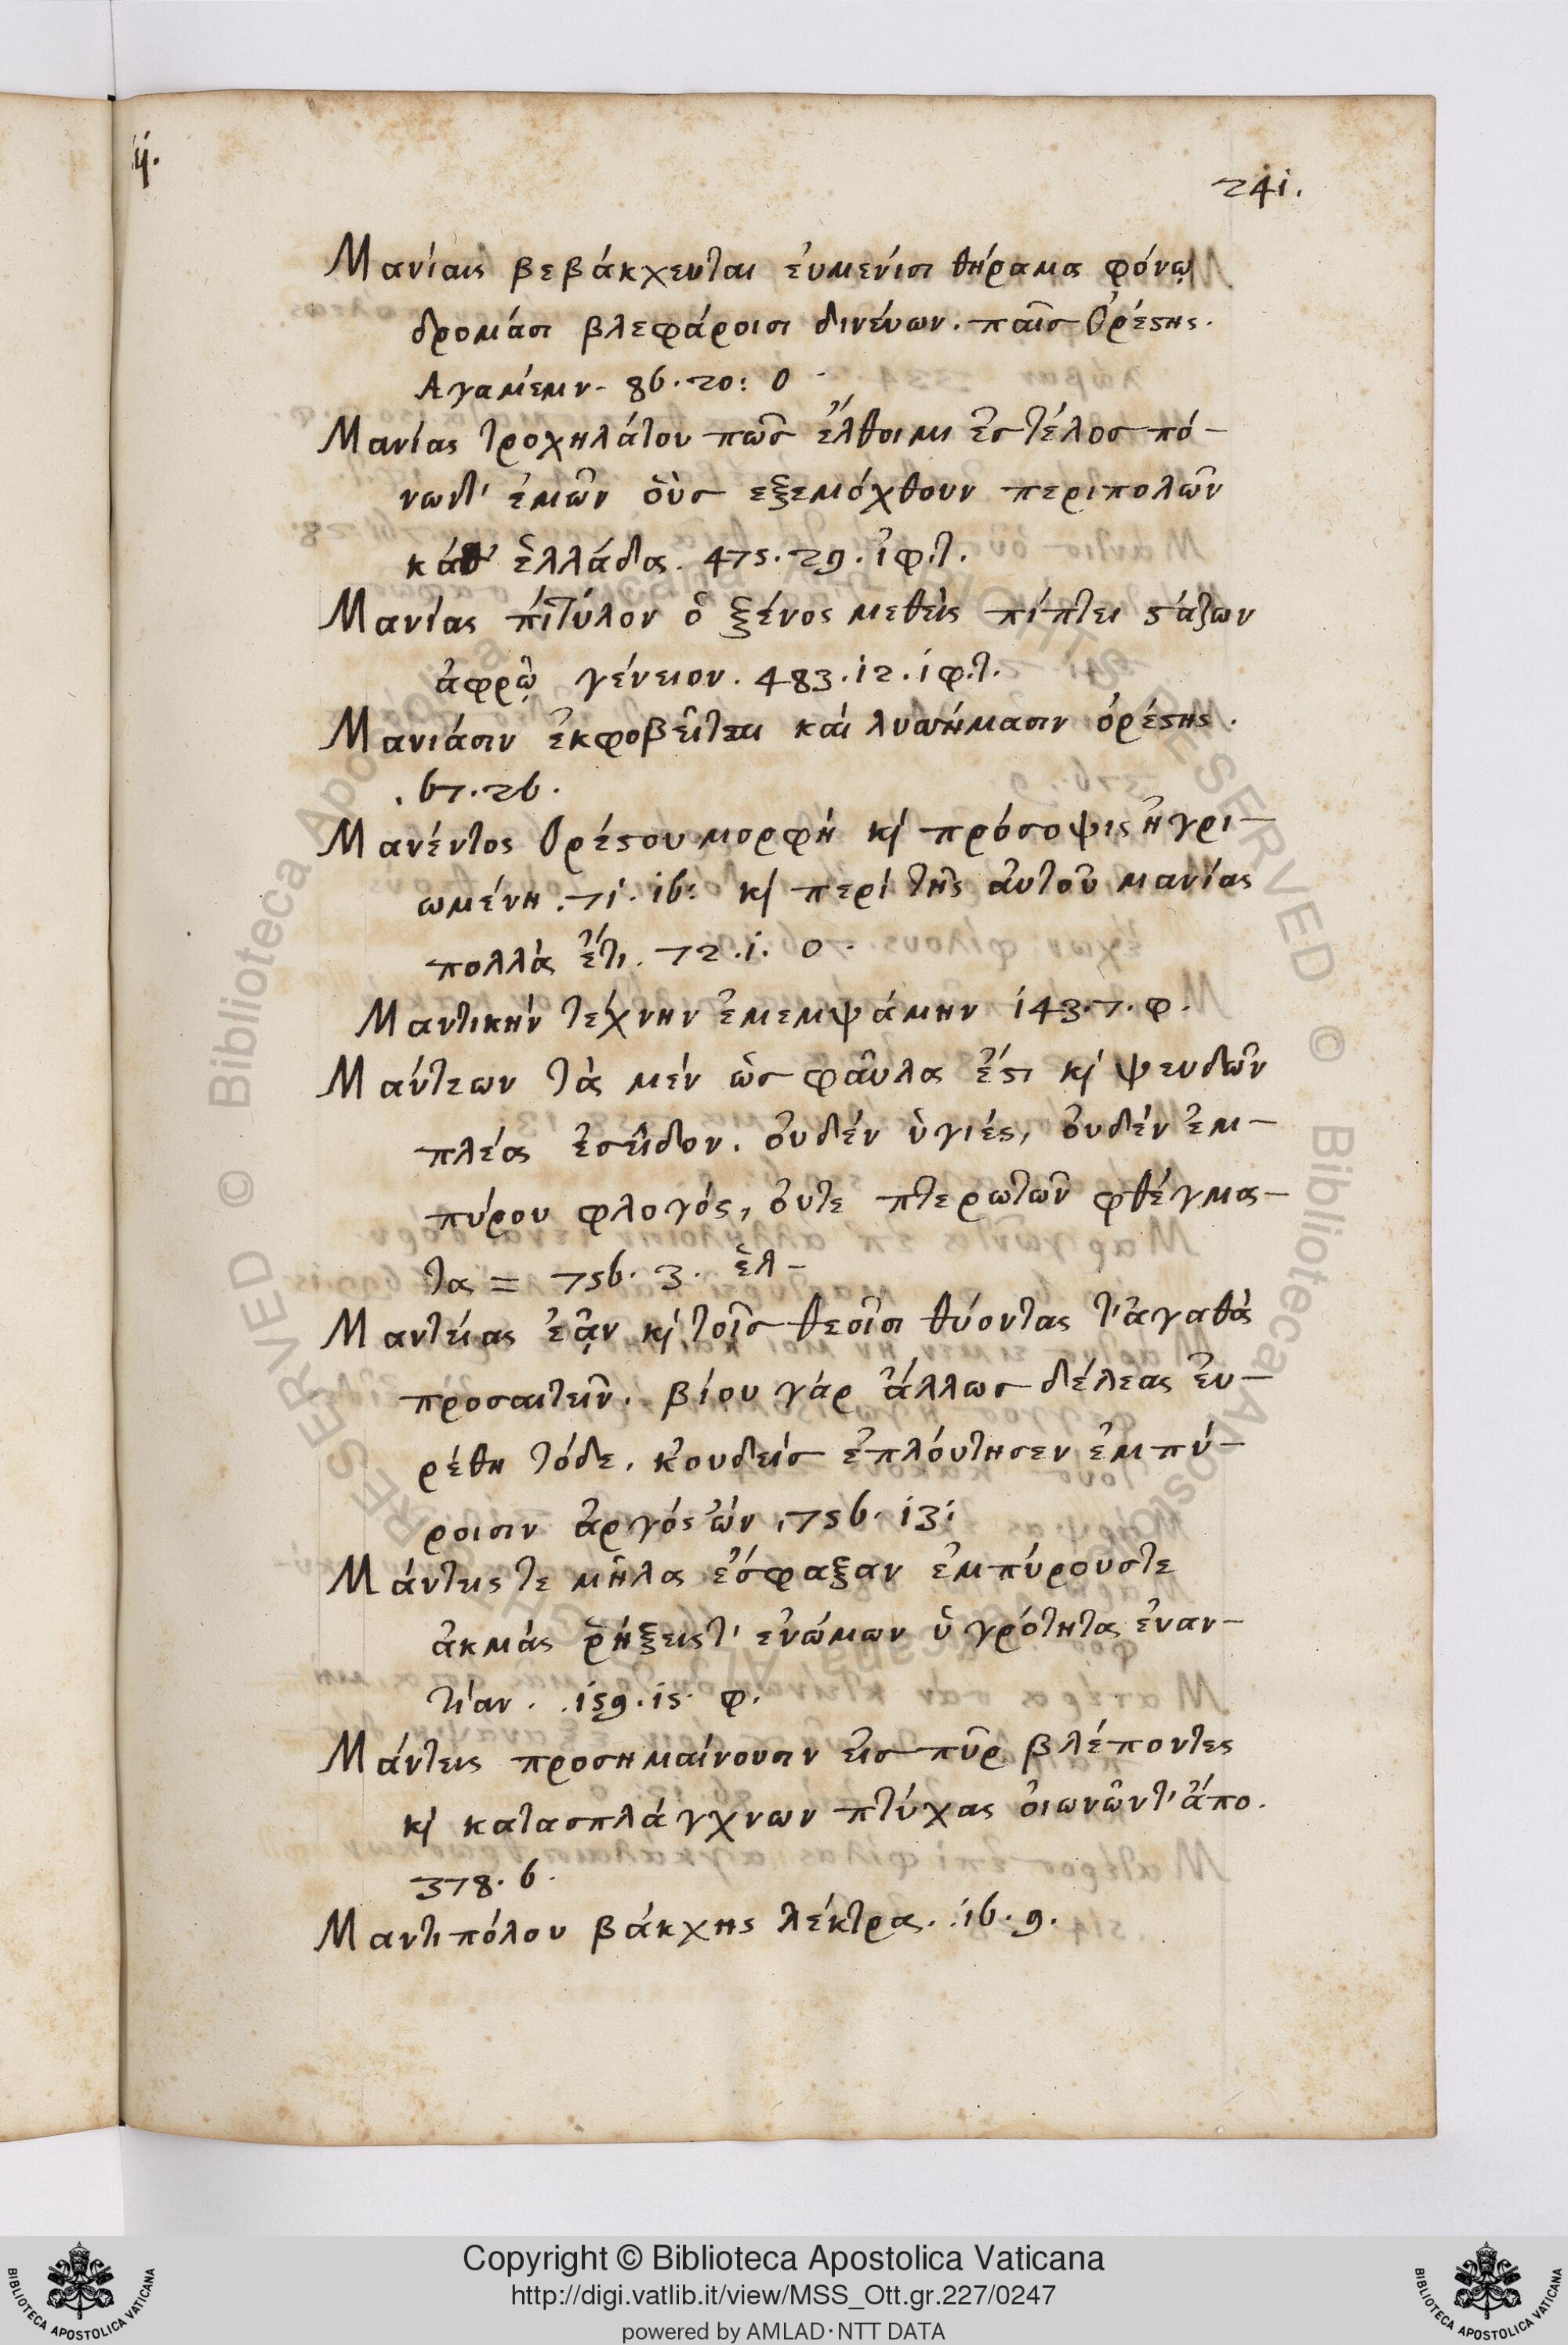 241.
Μανίαις βεβάκχευται ἐυμενίσι θήραμα φόνῳ
δρομάσι βλεφάροισι δινέυων. παῖσ Ὀρέϛης.
Αγαμέμν- 86.20: 0
Μανίας τροχηλάτου πῶσ ἔλθοιμι ἐσ τέλοσ πό-
νωντ' ἐμῶν ὁὺσ εξεμόχθουν περιπολῶν
κάθ' ἑλλάδα. 475.29. ἰφ.τ.
Μανίας πίτύλον ὁ ξένος μεθεὶς πίπτει ϛάζων
ἀφρῷ γένειον. 483.12. ἰφ.τ.
Μανιάσιν ἐκφοβεῖται καὶ λυσσήμασιν ὀρέϛης.
.67.26.
Μανέντος Ορέϛου μορφὴ κὶ πρόσοψις ἠγρι-
ωμένη. 71. 16: κὶ περὶ τῆς ἀυτοῦ μανίας
πολλὰ ἔτι. 72.1. 0.
Μαντικὴν τέχνην ἐμεμψάμην 143.7. φ.
Μάντεων τὰ μὲν ὡσ φᾶυλα ἔϛι κὶ ψευδῶν
πλέα ἐσεῖδον. ὀυδὲν ὑγιές, ὀυδὲν ἐμ-
πύρου φλογός, ὀυτε πτερωτῶν φθέγμα-
τα = 756. 3. ἑλ-
Μαντείας ἐᾷν κὶ τοῖσ θεοῖσι θύοντας τ'ἀγαθὰ
προσαιτεῖν. βίου γὰρ ἄλλωσ δέλεας ἐυ-
ρέθη τόδε. κ'ουδεὶσ ἐπλόυτησεν ἐμπύ-
ροισιν ἀργός ὤν. 756. 13:
Μάντεις τε μῆλα ἔσφαξαν ἐμπύρουστε
ἀκμὰς ῥήξεις τ' ἐνώμων ὑγρότητα ἐναν-
τίαν. .159.15. φ.
Μάντεις προσημαίνουσιν εἰσ πῦρ βλέποντες
κὶ κατασπλάγχνων πτύχας ὀιωνῶντ' ἄπο.
378. 6.
Μαντιπόλου βάκχης λέκτρα. .16. 9.
Copyright © Biblioteca Apostolica Vaticana
http://digi.vatlib.it/view/MSS_Ott.gr.227/0247
powered by AMLAD·NTT DATA